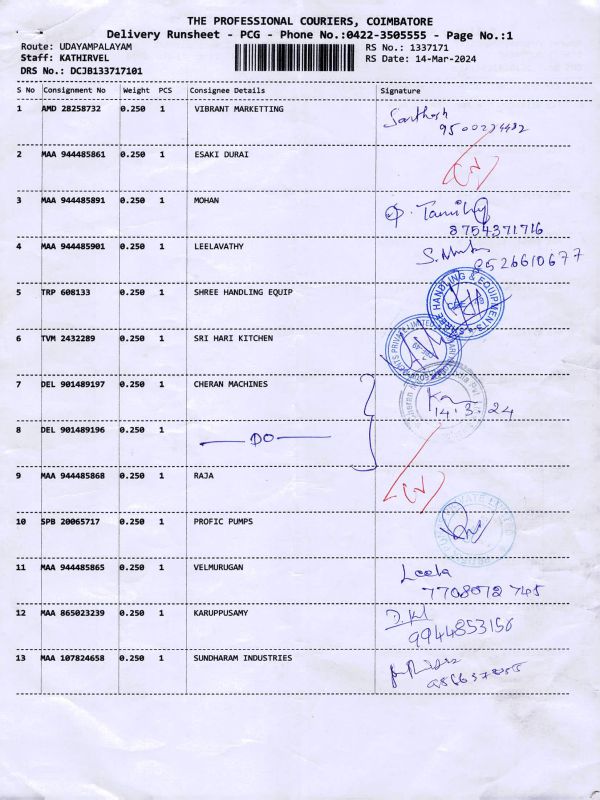 THE PROFESSIONAL COURIERS, COIMBATORE
Delivery Runsheet - PCG - Phone No.:0422-3505555 - Page No.:1
Route: UDAYAMPALAYAM RS No.: 1337171
Staff: KATHIRVEL RS Date: 14-Mar-2024
DRS No.: DCJB133717101
S No Consignment No Weight PCS Consignee Details Signature
1 AMD 28258732 0.250 1 VIBRANT MARKETTING Santhosh
2 MAA 944485861 0.250 1 ESAKI DURAI
3 MAA 944485891 0.250 1 MOHAN
8754371716
4 MAA 944485901 0.250 1 LEELAVATHY
9526610677
5 TRP 608133 0.250 1 SHREE HANDLING EQUIP SHREE HANDLING & EQUIPMENTS
6 TVM 2432289 0.250 1 SRI HARI KITCHEN
7 DEL 901489197 0.250 1 CHERAN MACHINES
14.3.24
8 DEL 901489196 0.250 1 — DO —
9 MAA 944485868 0.250 1 RAJA
10 SPB 20065717 0.250 1 PROFIC PUMPS
11 MAA 944485865 0.250 1 VELMURUGAN Leela
7708072745
12 MAA 865023239 0.250 1 KARUPPUSAMY
9944853156
13 MAA 107824658 0.250 1 SUNDHARAM INDUSTRIES